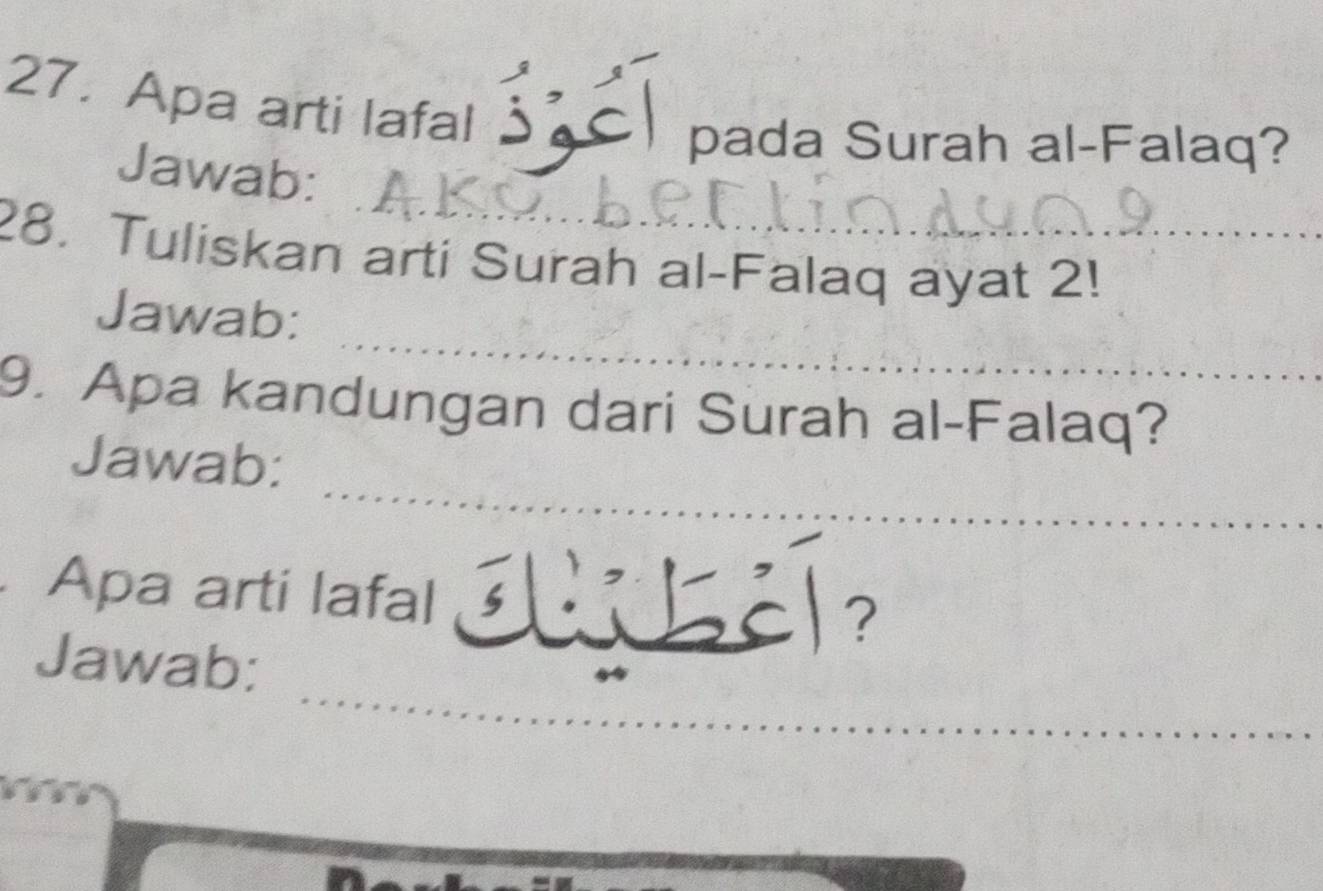 27. Apa arti lafal أَعُوْذُ pada Surah al-Falaq?
Jawab: Aku berlindung
28. Tuliskan arti Surah al-Falaq ayat 2!
Jawab:
9. Apa kandungan dari Surah al-Falaq?
Jawab:
. Apa arti lafal أَعْطَيْنٰكَ ?
Jawab: